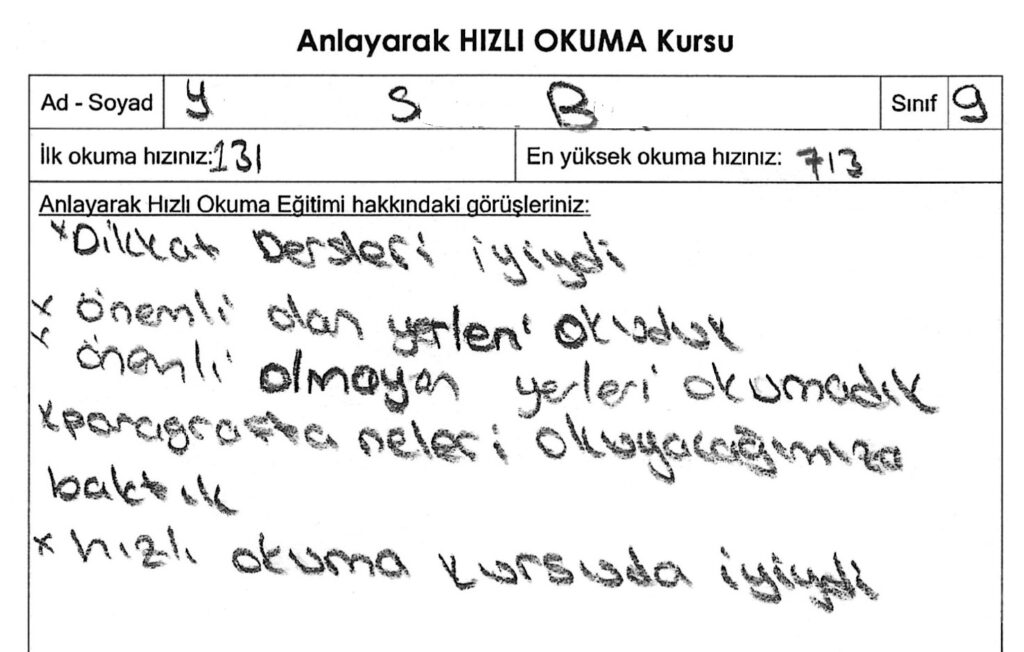 Anlayarak HIZLI OKUMA Kursu
Ad - Soyad Y S B Sınıf 9
İlk okuma hızınız: 131 En yüksek okuma hızınız: 713
Anlayarak Hızlı Okuma Eğitimi hakkındaki görüşleriniz:
x Dikkat Dersleri iyiydi
x önemli olan yerleri okuduk
x önemli olmayan yerleri okumadık
x paragrafta neleri okuyacağımıza
baktık
x hızlı okuma kursuda iyiydi